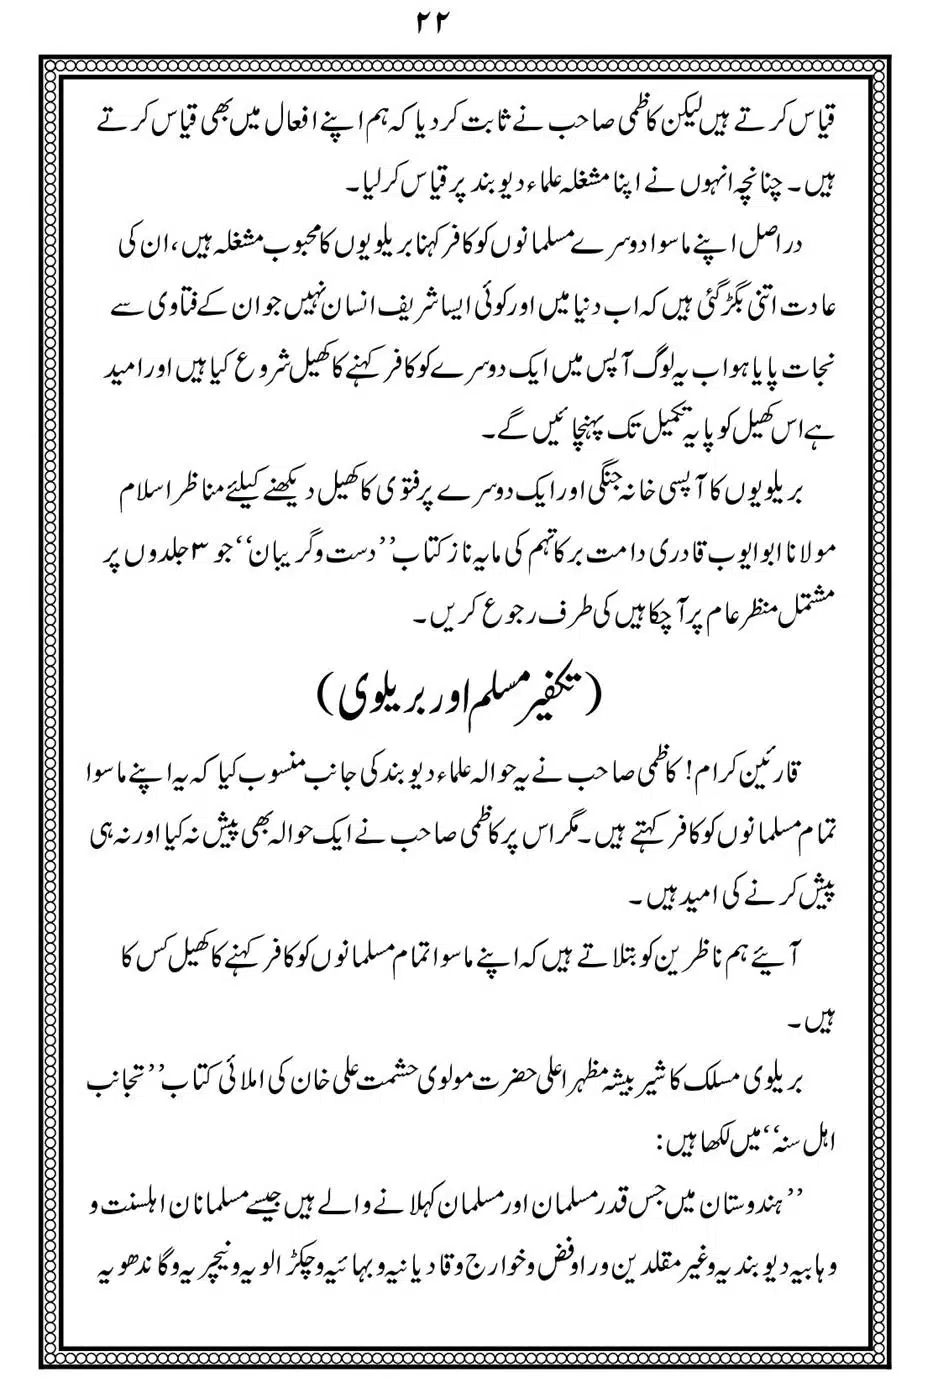 ۲۲
قیاس کرتے ہیں لیکن کاظمی صاحب نے ثابت کر دیا کہ ہم اپنے افعال میں بھی قیاس کرتے
ہیں۔ چنانچہ انہوں نے اپنا مشغلہ علماء دیوبند پر قیاس کر لیا۔
در اصل اپنے ماسوا دوسرے مسلمانوں کو کافر کہنا بریلویوں کا محبوب مشغلہ ہیں، ان کی
عادت اتنی بگڑ گئی ہیں کہ اب دنیا میں اور کوئی ایسا شریف انسان نہیں جو ان کے فتاوی سے
نجات پایا ہو اب یہ لوگ آپس میں ایک دوسرے کو کافر کہنے کا کھیل شروع کیا ہیں اور امید
ہے اس کھیل کو پایہ تکمیل تک پہنچائیں گے۔
بریلویوں کا آپسی خانہ جنگی اور ایک دوسرے پر فتوی کا کھیل دیکھنے کیلئے مناظر اسلام
مولانا ابوایوب قادری دامت برکاتہم کی مایہ ناز کتاب ’’دست وگریبان‘‘ جو ۳ جلدوں پر
مشتمل منظر عام پر آ چکا ہیں کی طرف رجوع کریں۔
(تکفیر مسلم اور بریلوی)
قارئین کرام! کاظمی صاحب نے یہ حوالہ علماء دیوبند کی جانب منسوب کیا کہ یہ اپنے ماسوا
تمام مسلمانوں کو کافر کہتے ہیں۔ مگر اس پر کاظمی صاحب نے ایک حوالہ بھی پیش نہ کیا اور نہ ہی
پیش کرنے کی امید ہیں۔
آیئے ہم ناظرین کو بتلاتے ہیں کہ اپنے ماسوا تمام مسلمانوں کو کافر کہنے کا کھیل کس کا
ہیں۔
بریلوی مسلک کا شیر بیشہ مظہر اعلی حضرت مولوی حشمت علی خان کی املائی کتاب ’’تجانب
اہل سنہ‘‘ میں لکھا ہیں:
’’ہندوستان میں جس قدر مسلمان اور مسلمان کہلانے والے ہیں جیسے مسلمانان اہلسنت و
وہابیہ دیوبندیہ وغیر مقلدین وروافض وخوارج وقادیانیہ وبہائیہ وچکڑالویہ ونیچریہ وگاندھویہ